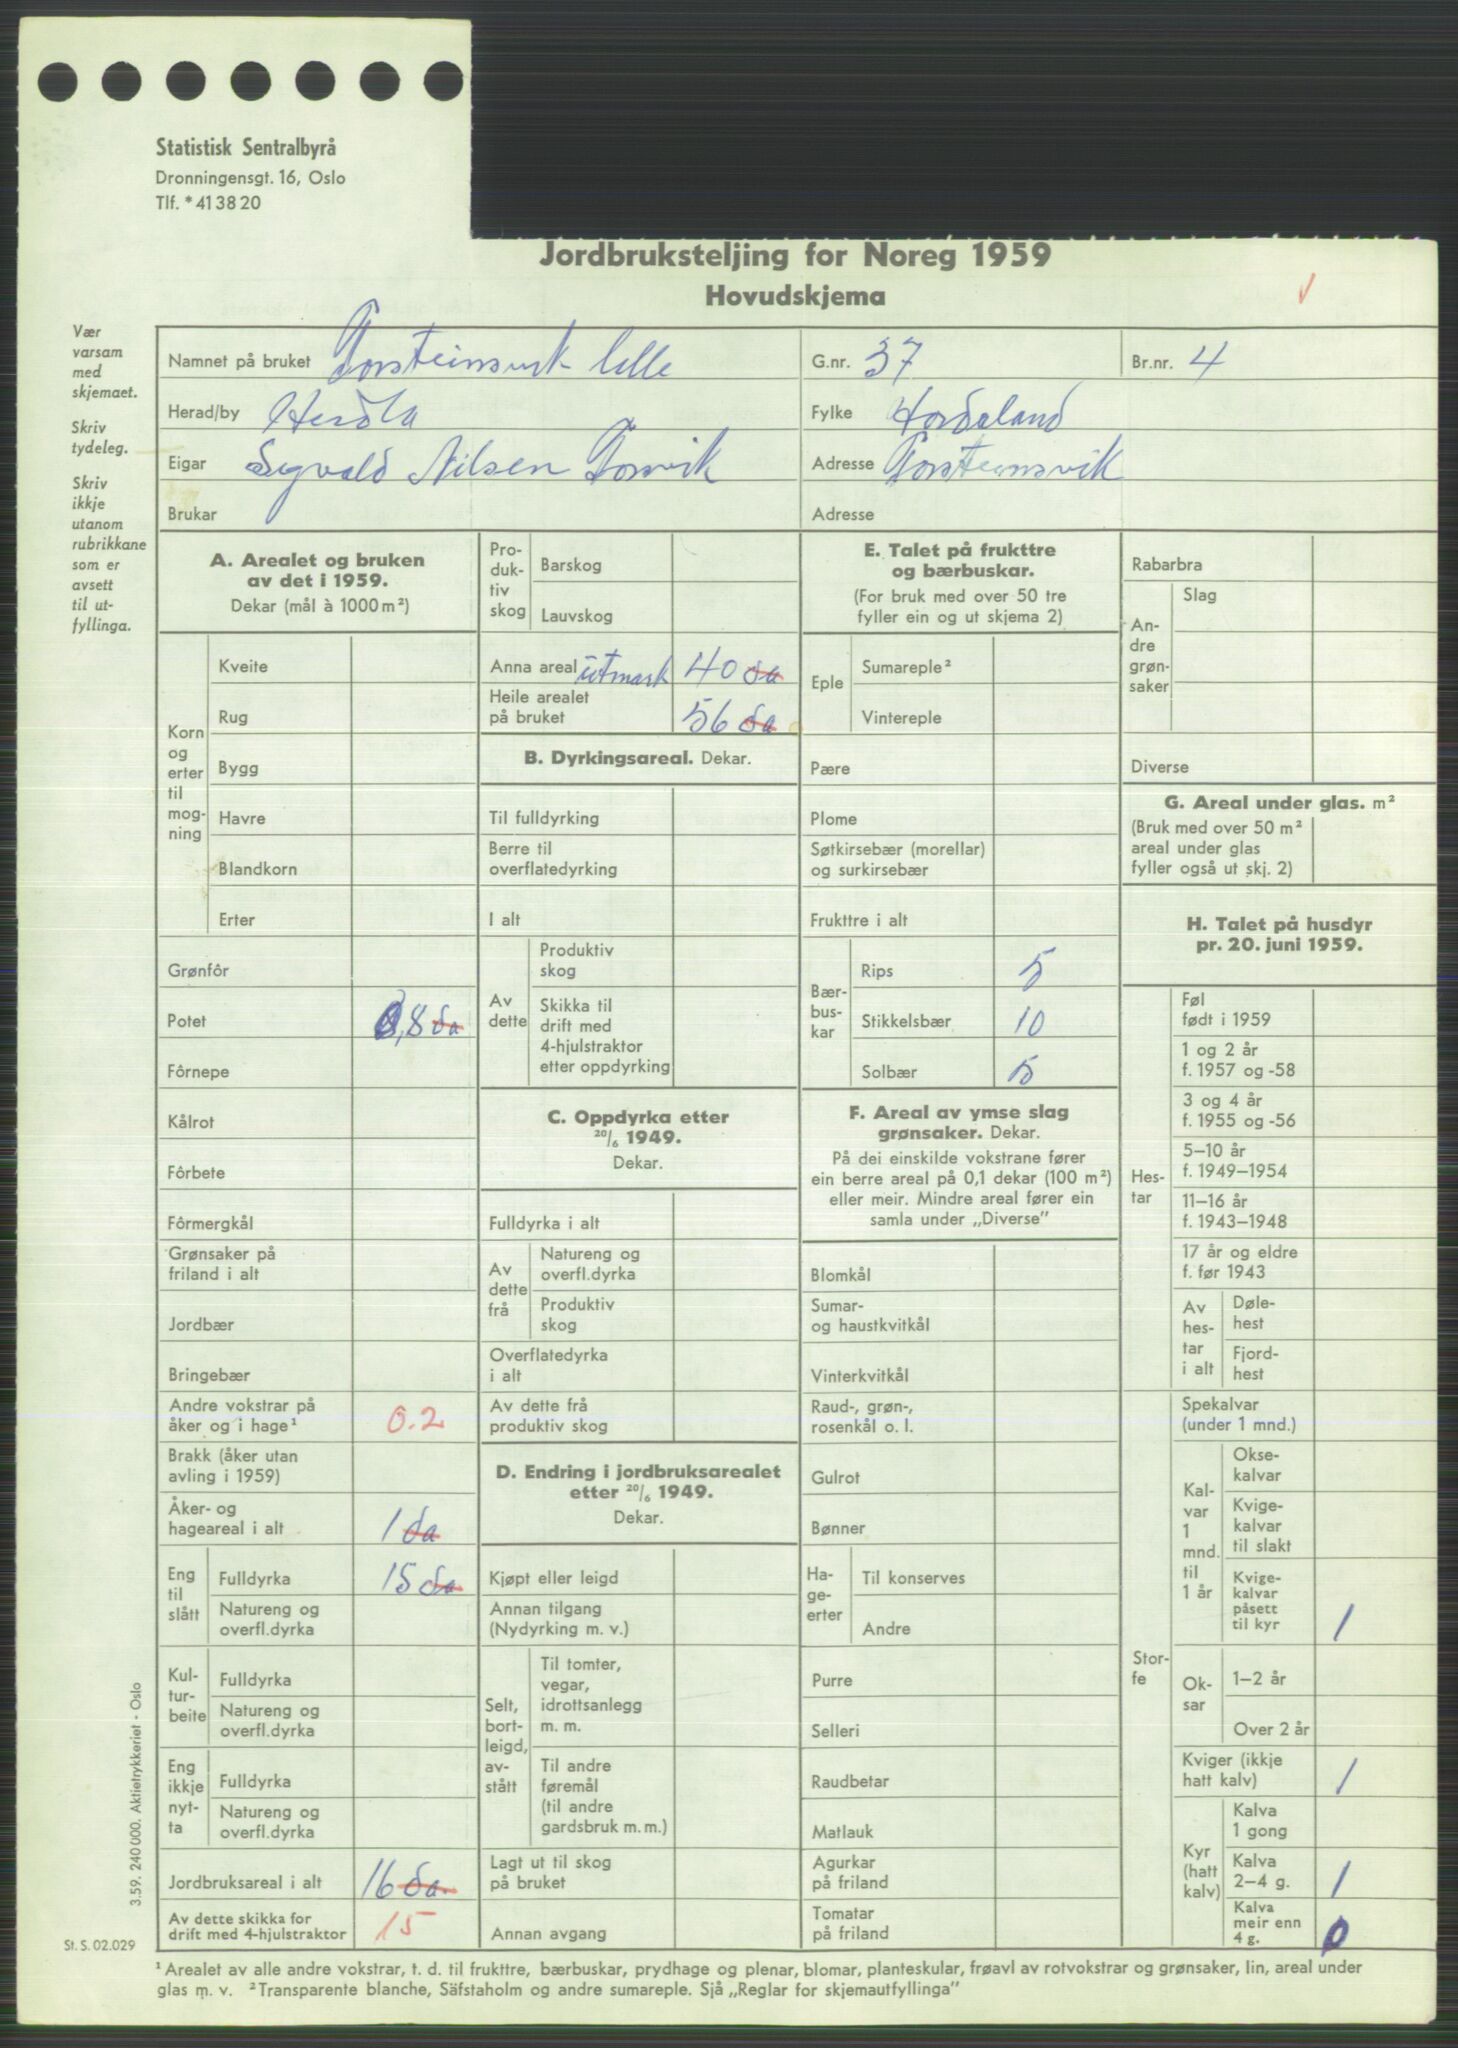 Statistisk Sentralbyrå
Dronningensgt. 16, Oslo
Tlf. * 41 38 20
Jordbruksteljing for Noreg 1959
Hovudskjema
Vær
varsam
med
skjemaet.
Skriv
tydeleg.
Skriv
ikkje
utanom
rubrikkane
som er
avsett
til ut-
fyllinga.
Namnet på bruket Torsteinsvik lille G.nr. 37 Br.nr. 4
Herad/by Herdla Fylke Hordaland
Eigar Sigvald Nilsen Torsvik Adresse Torsteinsvik
Brukar Adresse
A. Arealet og bruken
av det i 1959.
Dekar (mål à 1000 m²)
Korn
og
erter
til
mog-
ning
Kveite
Rug
Bygg
Havre
Blandkorn
Erter
Grønfôr
Potet 0,8 da
Fôrnepe
Kålrot
Fôrbete
Fôrmergkål
Grønsaker på
friland i alt
Jordbær
Bringebær
Andre vokstrar på
åker og i hage¹ 0.2
Brakk (åker utan
avling i 1959)
Åker- og
hageareal i alt 1 da
Eng
til
slått
Fulldyrka 15 da
Natureng og
overfl.dyrka
Kul-
tur-
beite
Fulldyrka
Natureng og
overfl.dyrka
Eng
ikkje
nyt-
ta
Fulldyrka
Natureng og
overfl.dyrka
Jordbruksareal i alt 16 da.
Av dette skikka for
drift med 4-hjulstraktor 15
Pro-
duk-
tiv
skog
Barskog
Lauvskog
Anna areal utmark 40 da
Heile arealet
på bruket 56 da
B. Dyrkingsareal. Dekar.
Til fulldyrking
Berre til
overflatedyrking
I alt
Av
dette
Produktiv
skog
Skikka til
drift med
4-hjulstraktor
etter oppdyrking
C. Oppdyrka etter
20/6 1949.
Dekar.
Fulldyrka i alt
Av
dette
frå
Natureng og
overfl.dyrka
Produktiv
skog
Overflatedyrka
i alt
Av dette frå
produktiv skog
D. Endring i jordbruksarealet
etter 20/6 1949.
Dekar.
Kjøpt eller leigd
Annan tilgang
(Nydyrking m. v.)
Selt,
bort-
leigd,
av-
stått
Til tomter,
vegar,
idrottsanlegg
m. m.
Til andre
føremål
(til andre
gardsbruk m. m.)
Lagt ut til skog
på bruket
Annan avgang
E. Talet på frukttre
og bærbuskar.
(For bruk med over 50 tre
fyller ein og ut skjema 2)
Eple
Sumareple²
Vintereple
Pære
Plome
Søtkirsebær (morellar)
og surkirsebær
Frukttre i alt
Bær-
bus-
kar
Rips 5
Stikkelsbær 10
Solbær 5
F. Areal av ymse slag
grønsaker. Dekar.
På dei einskilde vokstrane fører
ein berre areal på 0,1 dekar (100 m²)
eller meir. Mindre areal fører ein
samla under „Diverse”
Blomkål
Sumar-
og haustkvitkål
Vinterkvitkål
Raud-, grøn-,
rosenkål o. l.
Gulrot
Bønner
Ha-
ge-
erter
Til konserves
Andre
Purre
Selleri
Raudbetar
Matlauk
Agurkar
på friland
Tomatar
på friland
Rabarbra
An-
dre
grøn-
saker
Slag
Diverse
G. Areal under glas. m²
(Bruk med over 50 m²
areal under glas
fyller også ut skj. 2)
H. Talet på husdyr
pr. 20. juni 1959.
Hes-
tar
Føl
født i 1959
1 og 2 år
f. 1957 og -58
3 og 4 år
f. 1955 og -56
5–10 år
f. 1949–1954
11–16 år
f. 1943–1948
17 år og eldre
f. før 1943
Av
hes-
tar
i alt
Døle-
hest
Fjord-
hest
Stor-
fe
Spekalvar
(under 1 mnd.)
Kal-
var
1
mnd.
til
1 år
Okse-
kalvar
Kvige-
kalvar
til slakt
Kvige-
kalvar
påsett
til kyr 1
Ok-
sar
1–2 år
Over 2 år
Kviger (ikkje
hatt kalv) 1
Kyr
(hatt
kalv)
Kalva
1 gong
Kalva
2–4 g. 1
Kalva
meir enn
4 g. 0
3.59. 240 000. Aktietrykkeriet - Oslo
St. S. 02.029
¹ Arealet av alle andre vokstrar, t. d. til frukttre, bærbuskar, prydhage og plenar, blomar, planteskular, frøavl av rotvokstrar og grønsaker, lin, areal under
glas m. v. ² Transparente blanche, Säfstaholm og andre sumareple. Sjå „Reglar for skjemautfyllinga”